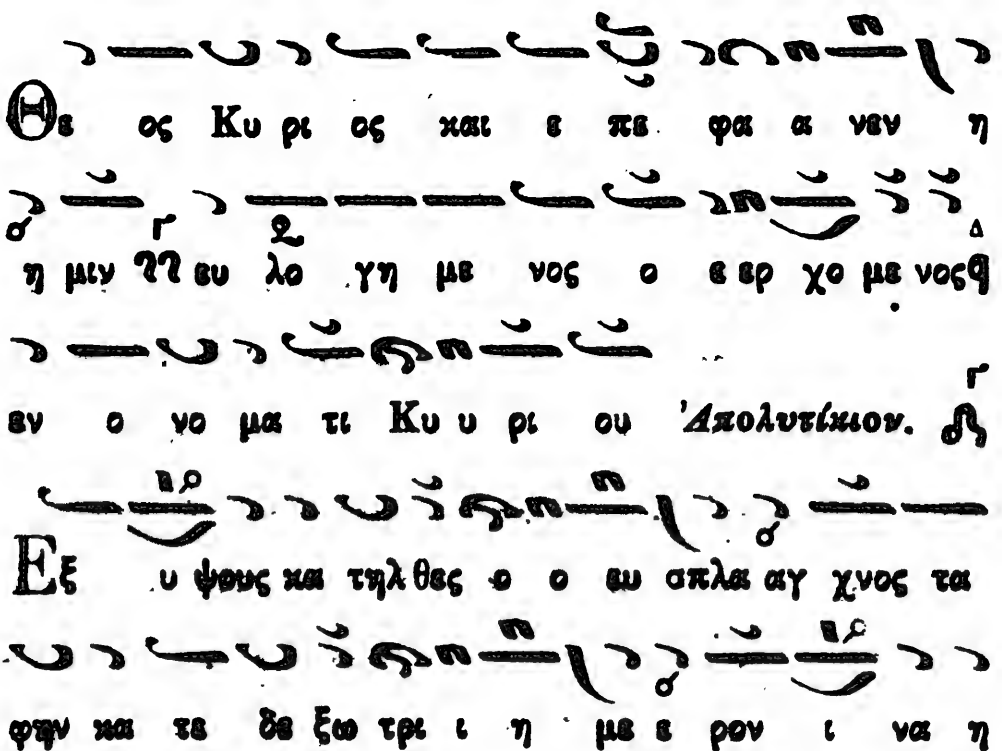 Θε ος Κυ ρι ος και ε πε φα α νεν η
η μιν ευ λο γη με νος ο ε ερ χο με νος
εν ο νο μα τι Κυ υ ρι ου Ἀπολυτίκιον.
Εξ υ ψους κα τηλ θες ο ο ευ σπλα αγ χνος τα
φην κα τε δε ξω τρι ι η με ε ρον ι να η